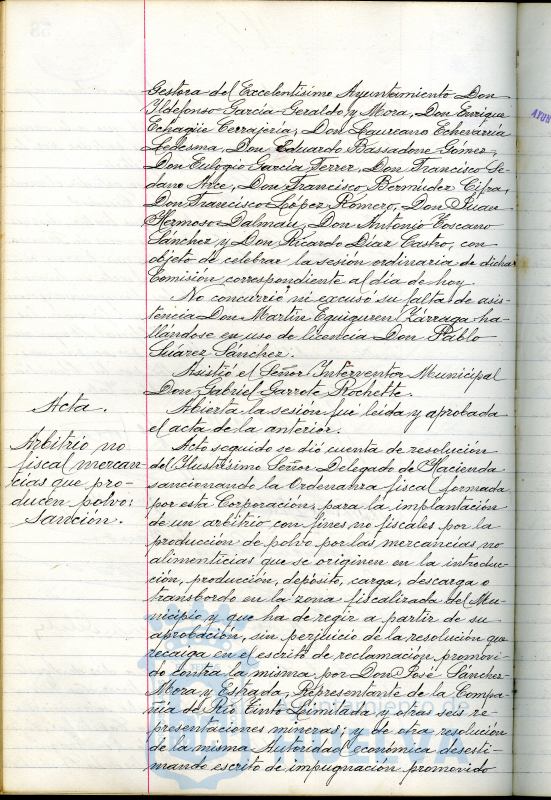 Gestora del Excelentísimo Ayuntamiento Don
Yldefonso García Geraldo y Mora, Don Enrique
Echagüe Cerrajería, Don Laureano Echevarría
Ledesma, Don Eduardo Bassadone Gómez,
Don Eulogio García Ferrer, Don Francisco Se-
dano Arce, Don Francisco Bermúdez Cifra,
Don Francisco López Romero, Don Juan
Hermoso Dalmau, Don Antonio Toscano
Sánchez y Don Ricardo Díaz Castro, con
objeto de celebrar la sesión ordinaria de dicha
Comisión, correspondiente al día de hoy.
No concurrió ni excusó su falta de asis-
tencia Don Martín Eguiguren Yárraga ha-
llándose en uso de licencia Don Pablo
Suárez Sanchez.
Asistió el Señor Interventor Municipal
Don Gabriel Garrote Rochette.
Acta.
Abierta la sesión fué leida y aprobada
el acta de la anterior.
Arbitrio no
fiscal mercan-
cías que pro-
ducen polvo:
Sanción.
Acto seguido se dió cuenta de resolución
del Ilustrísimo Señor Delegado de Hacienda
sancionando la Ordenanza fiscal formada
por esta Corporacion, para la implantación
de un arbitrio con fines no fiscales por la
producción de polvo por las mercancías no
alimenticias que se originen en la introduc-
ción, producción, depósito, carga, descarga o
transbordo en la zona fiscalizada del Mu-
nicipio y que ha de regir a partir de su
aprobación, sin perjuicio de la resolución que
recaiga en el escrito de reclamación promovi-
do contra la misma por Don José Sánchez
Mora y Estrada, Representante de la Compa-
ñía de Rio Tinto Limitada y otras seis re-
presentaciones mineras; y de otra resolución
de la misma Autoridad económica desesti-
mando escrito de impugnación promovido
Ayuntamiento de
HUELVA
AYUN